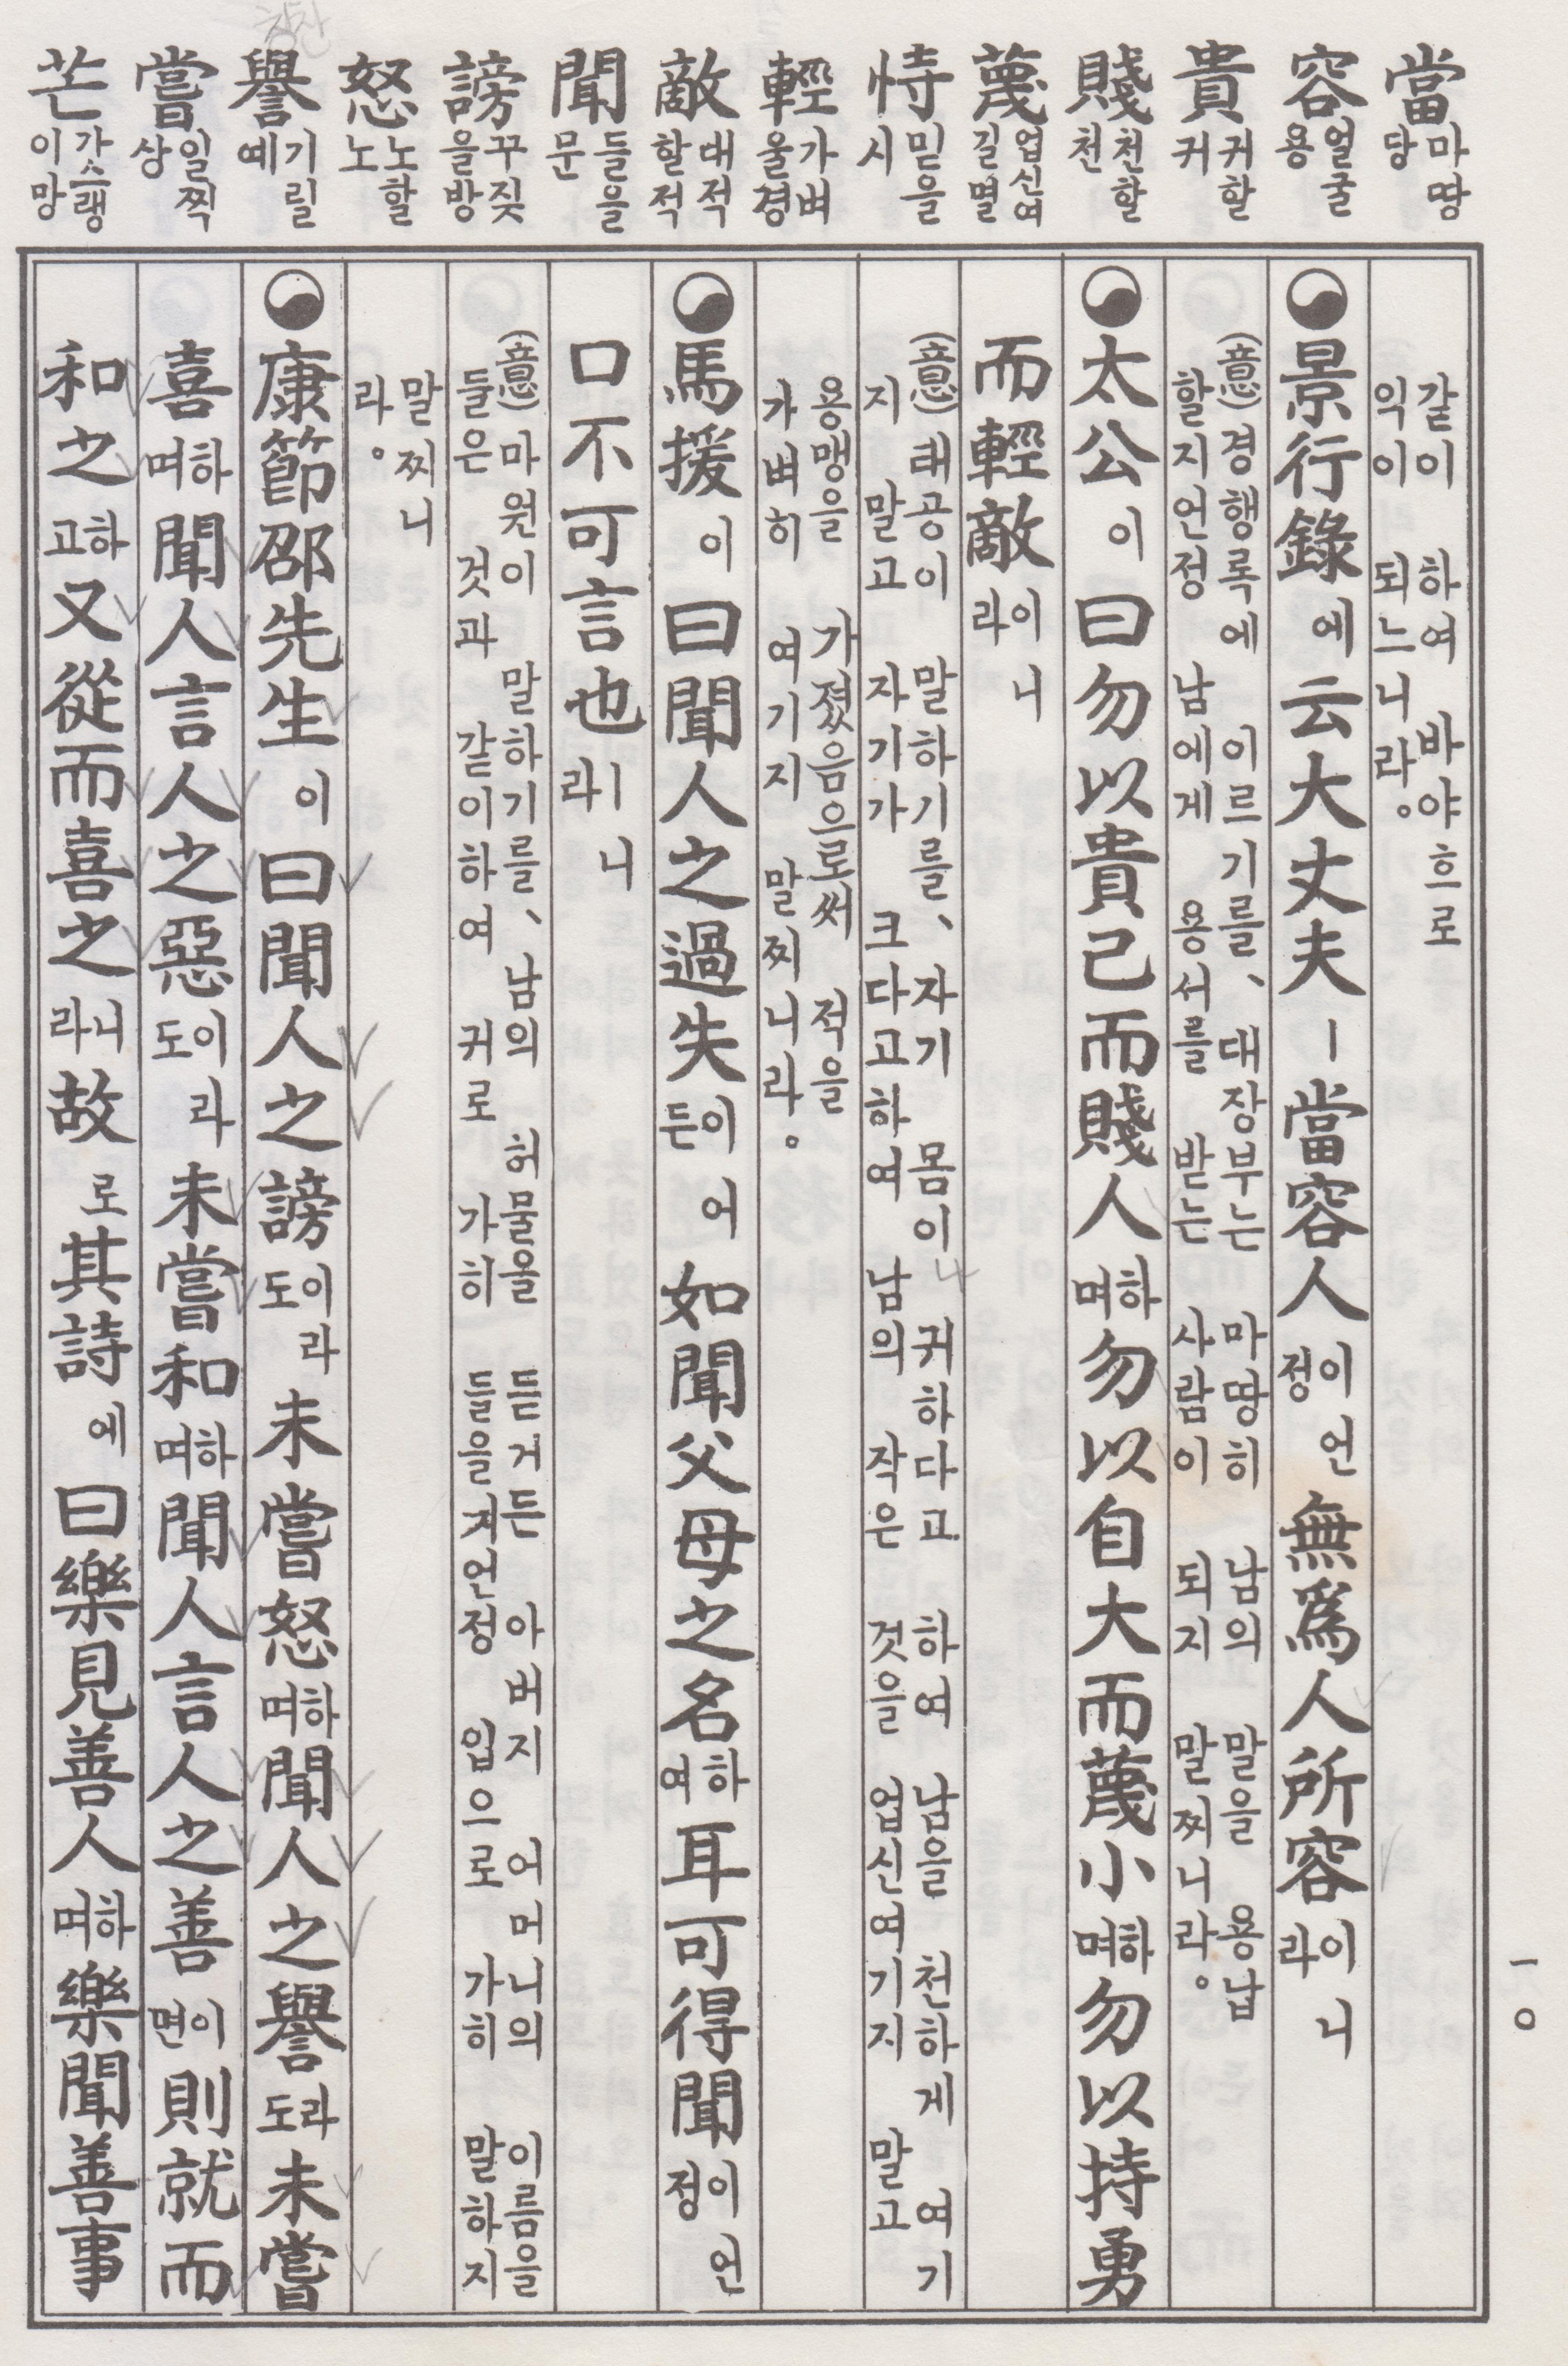 當 마땅 당
容 얼굴 용
貴 귀할 귀
賤 천할 천
蔑 업신여길 멸
恃 믿을 시
輕 가벼울 경
敵 대적할 적
聞 들을 문
謗 꾸짖을 방
怒 노할 노
譽 기릴 예
嘗 일찍 상
芒 가스랭이 망
같이 하여 바야흐로
익이 되느니라。
景行錄에云大丈夫ㅣ當容人이언정無爲人所容이니라
(意) 경행록에 이르기를、대장부는 마땅히 남의 말을 용납
할지언정 남에게 용서를 받는 사람이 되지 말찌니라。
太公이曰勿以貴己而賤人하며勿以自大而蔑小하며勿以持勇
而輕敵이니라
(意) 태공이 말하기를、자기 몸이 귀하다고 하여 남을 천하게 여기
지 말고 자기가 크다고하여 남의 작은 것을 업신여기지 말고
용맹을 가졌음으로써 적을
가벼히 여기지 말찌니라。
馬援이曰聞人之過失이어든如聞父母之名하여耳可得聞이언정
口不可言也ㅣ니라
(意) 마원이 말하기를、남의 허물을 듣거든 아버지 어머니의 이름을
들은 것과 같이하여 귀로 가히 들을지언정 입으로 가히 말하지
말찌니
라。
康節邵先生이曰聞人之謗이라도未嘗怒하며聞人之譽라도未嘗
喜하며聞人言人之惡이라도未嘗和하며聞人言人之善이면則就而
和之하고又從而喜之니라故로其詩에曰樂見善人하며樂聞善事
一〇